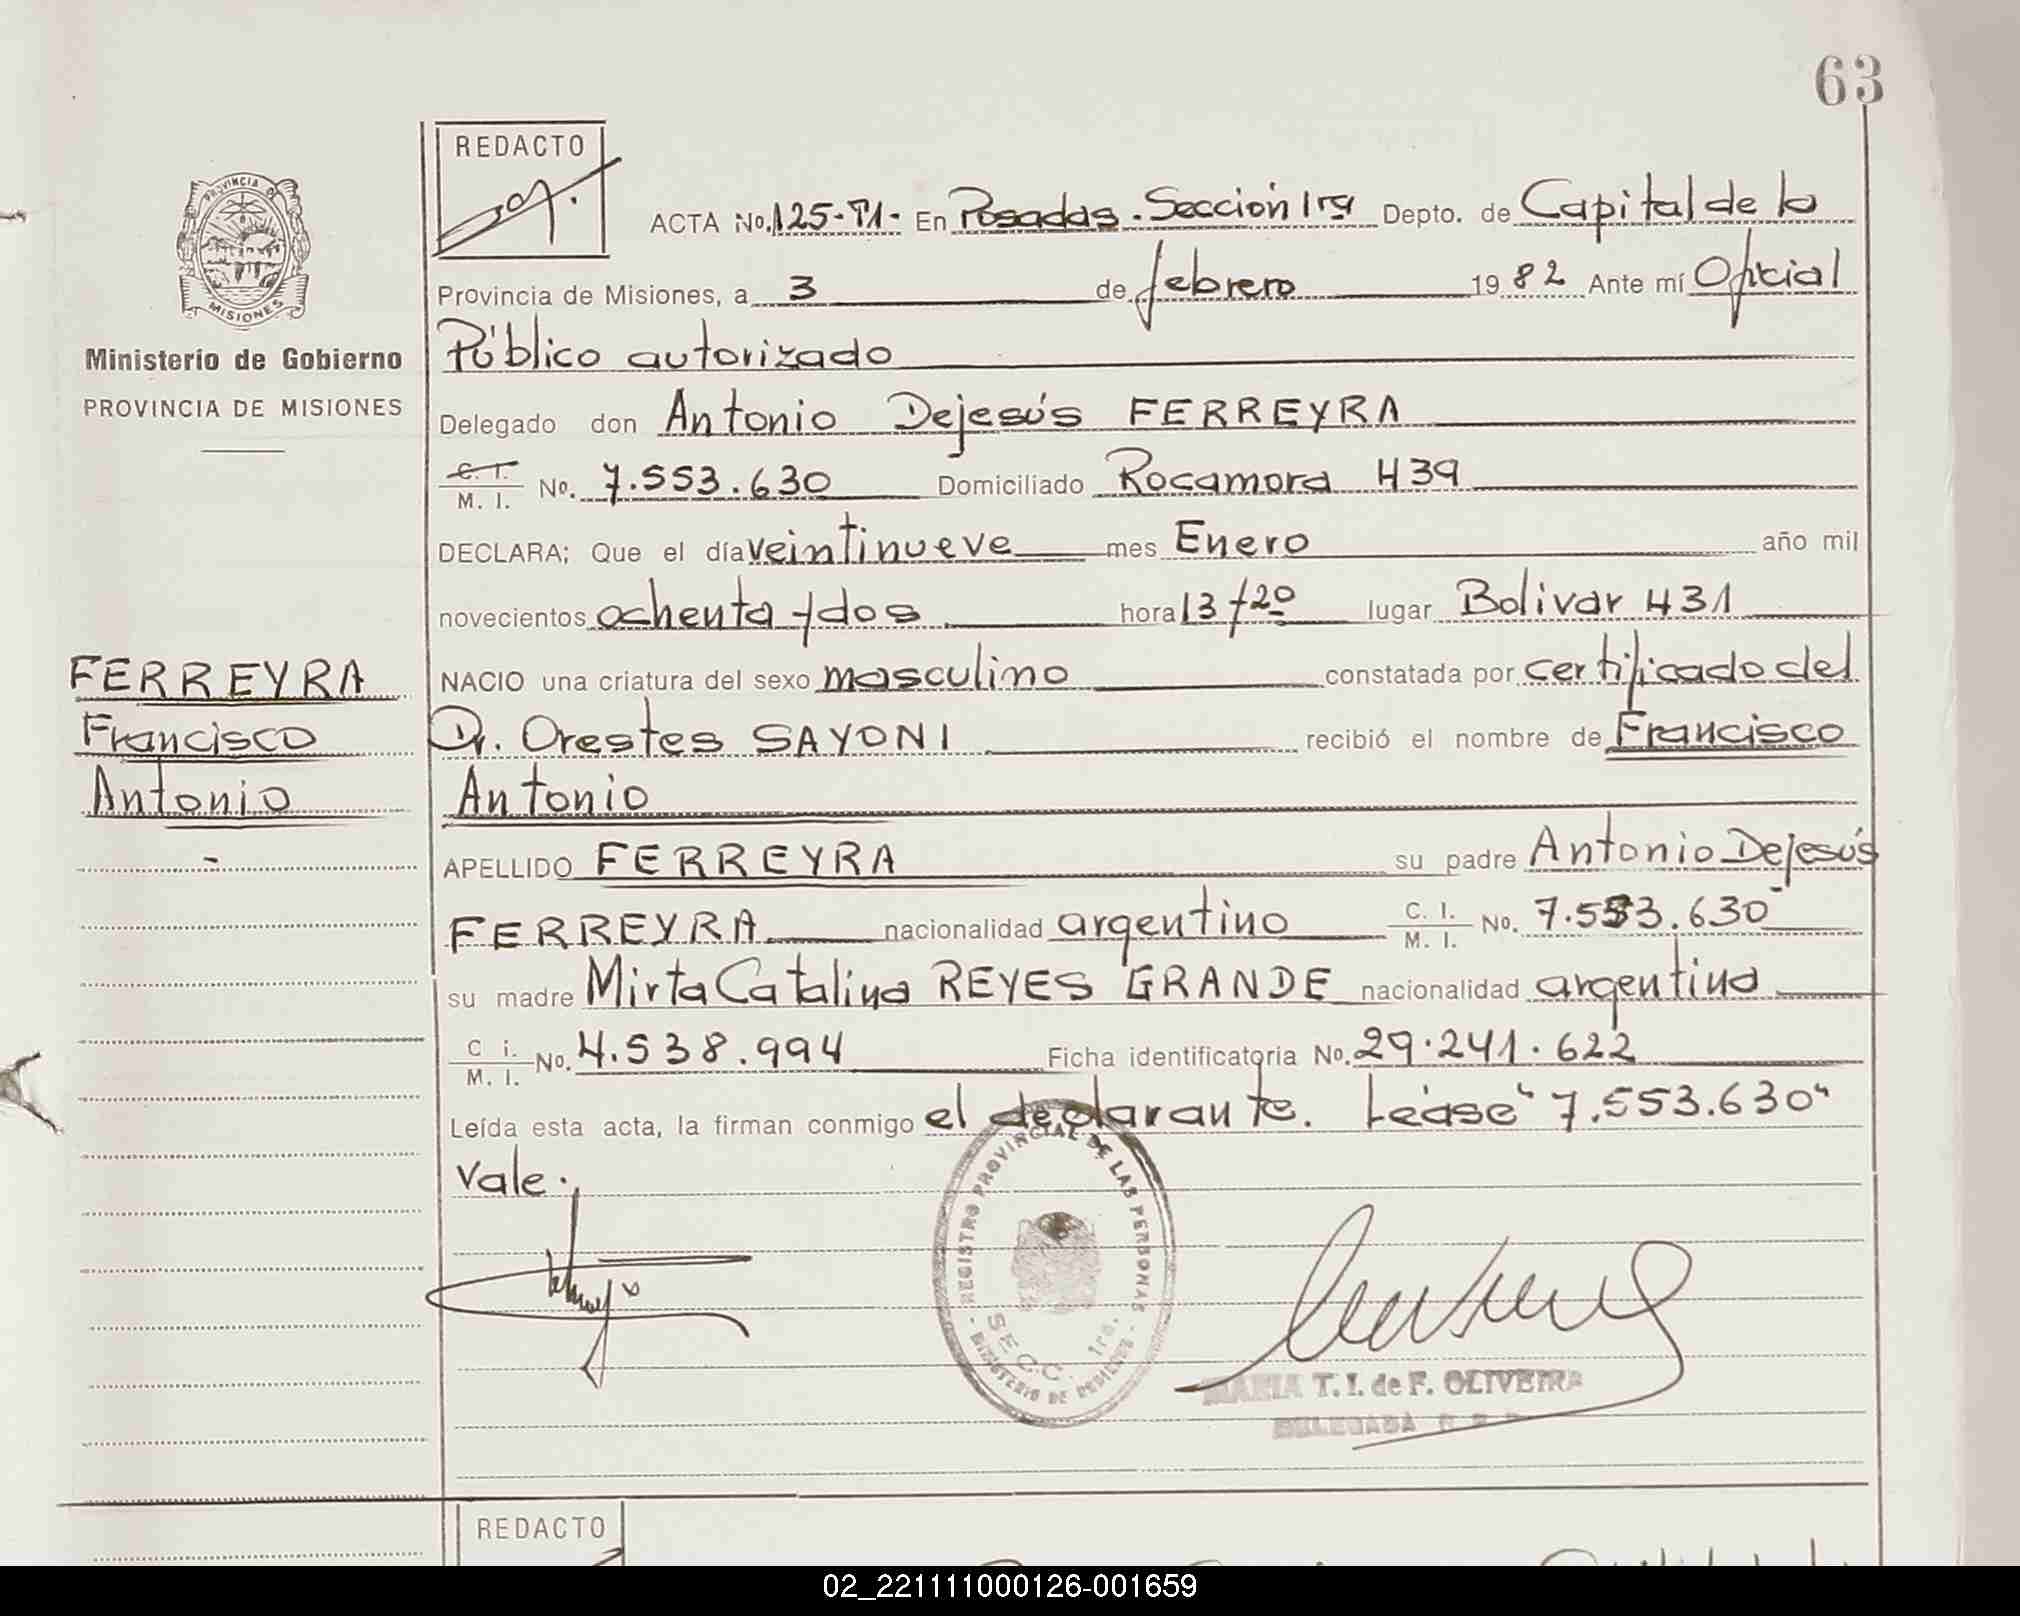 63
REDACTO
ACTA No. 125-T1- En Posadas.Sección 1ra Depto. de Capital de la
Provincia de Misiones, a 3 de febrero 1982 Ante mí Oficial
Público autorizado
Delegado don Antonio Dejesús FERREYRA
C. I. M. I. No. 7.553.630 Domiciliado Rocamora 439
DECLARA; Que el día veintinueve mes Enero año mil
novecientos ochenta y dos hora 13 y 20 lugar Bolivar 431
NACIO una criatura del sexo masculino constatada por certificado del
Dr. Orestes SAYONI recibió el nombre de Francisco
Antonio
APELLIDO FERREYRA su padre Antonio Dejesús
FERREYRA nacionalidad argentino C. I. M. I. No. 7.553.630
su madre Mirta Catalina REYES GRANDE nacionalidad argentina
C i. M. I. No. 4.538.994 Ficha identificatoria No. 29.241.622
Leída esta acta, la firman conmigo el declarante. Léase "7.553.630"
Vale.
PROVINCIA DE MISIONES
Ministerio de Gobierno
PROVINCIA DE MISIONES
FERREYRA
Francisco
Antonio
REGISTRO PROVINCIAL DE LAS PERSONAS
SECC. 1ra.
- MINISTERIO DE GOBIERNO -
MARIA T. I. de F. OLIVEIRA
DELEGADA
REDACTO
02_221111000126-001659